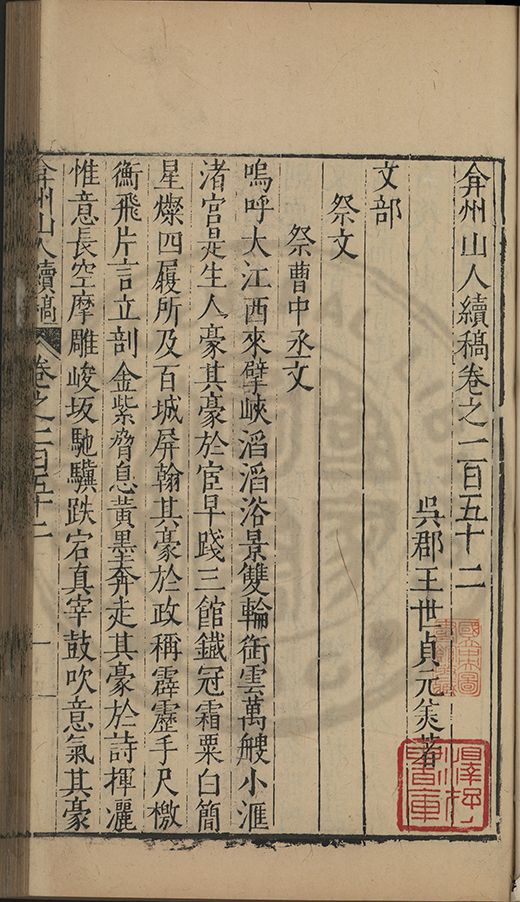 弇州山人續稿卷之一百五十二
吳郡王世貞元美著
文部
祭文
祭曹中丞文
嗚呼大江西來擘峽滔滔浴景雙輪銜雲萬艘小滙
渚宮是生人豪其豪於宦早踐三館鐵冠霜粟白簡
星燦四履所及百城屏翰其豪於政稱霹靂手尺檄
衡飛片言立剖金紫脅息黃墨奔走其豪於詩揮灑
惟意長空摩雕峻坂馳驥跌宕真宰鼓吹意氣其豪
弇州山人續稿 卷之一百五十二 一